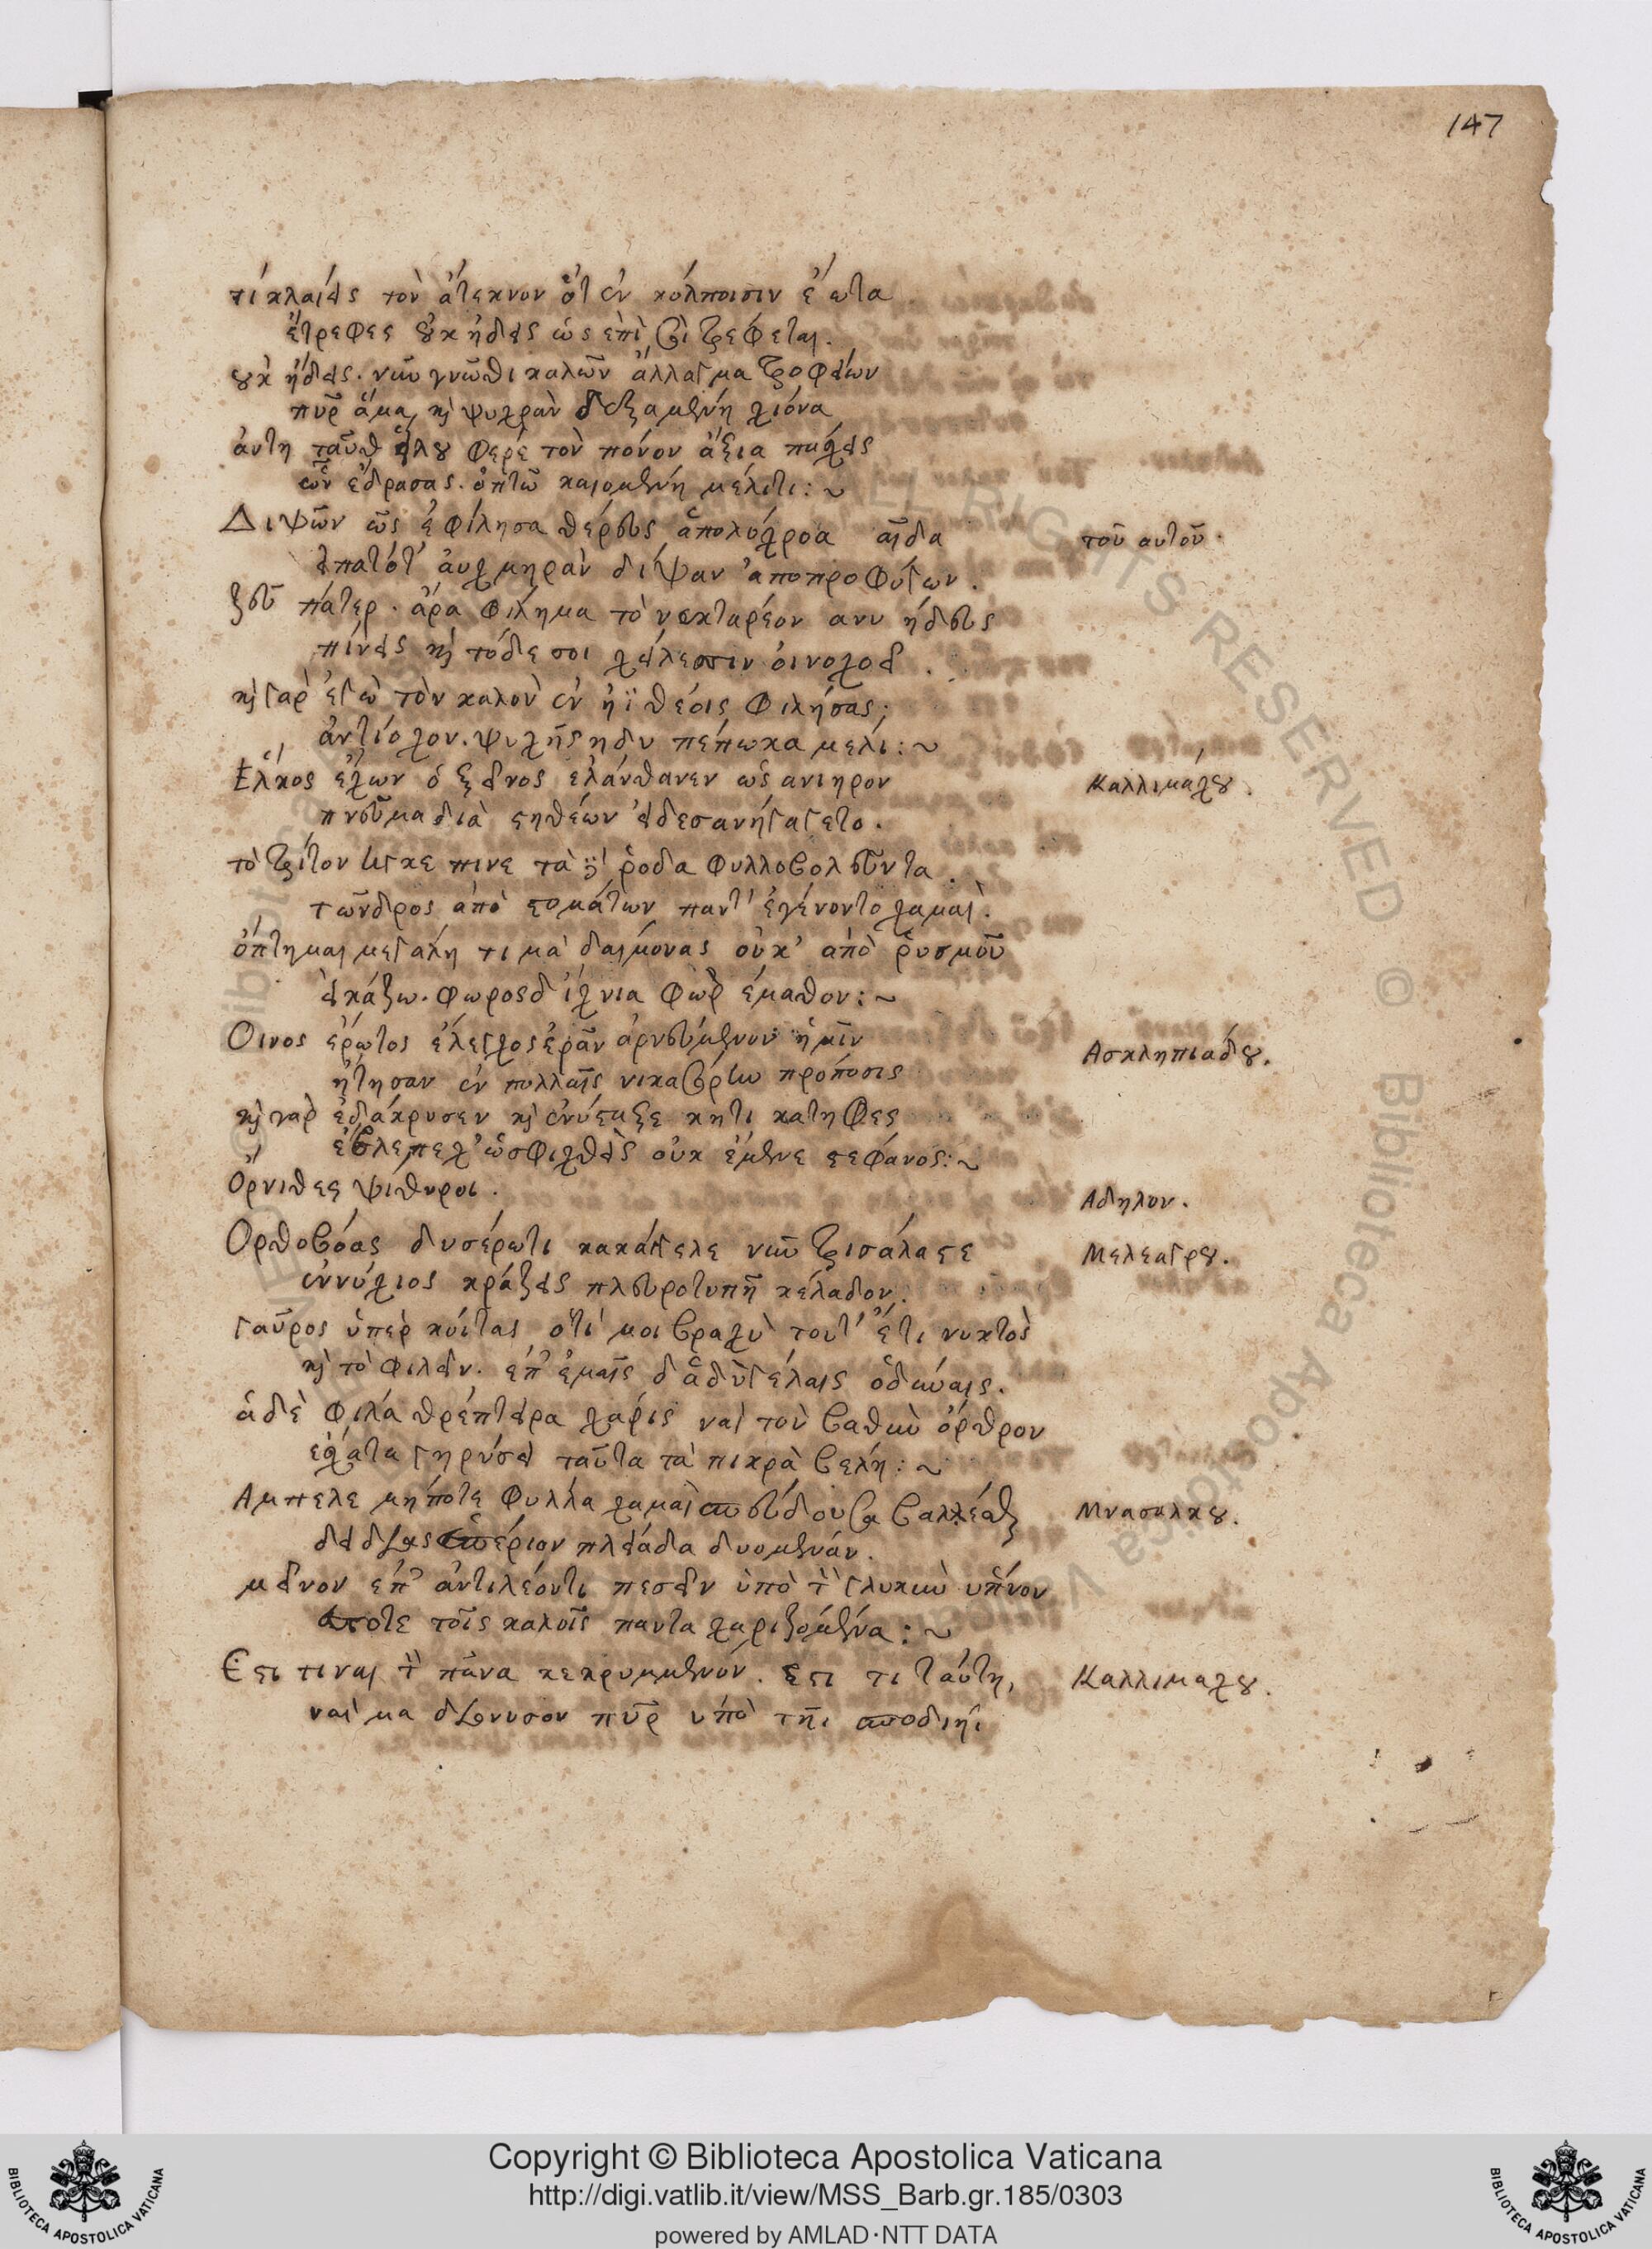 147
τί κλαίεις τὸν ἄτεκνον ὅτ ἐν κόλποισιν ἔρωτα
ἔτρεφες οὐκ ἤδεις ὡς ἐπὶ σοὶ τρέφεται.
οὐκ ἤδεις. νῦν γνῶθι καλῶν ἄλλαγμα τροφείων
πῦρ ἅμα, καὶ ψυχρὰν δεξαμένη χιόνα
ἀυτὴ ταῦθ εἵλου φέρε τὸν πόνον ἄξια πάσχεις
ὧν ἔδρασας. ὀπτῶ καιομένη μέλιτι:~
Διψῶν ὡς ἐφίλησα θέρευς ἁπαλόχροα παῖδα τοῦ αυτοῦ.
εἶπα τότ' ἀυχμηρὰν δίψαν ἀποπροφύγων.
ζεῦ πάτερ. ἆρα φίλημα τὸ νεκταρέον
πίνεις καὶ τόδε σοι χείλεσιν ὀινοχοεῖ.
καὶ γὰρ ἐγὼ τὸν καλὸν ἐν ἠϊθέοις φιλήσας;
ἀντίοχον. ψυχῆς ηδυ πέπωκα μελι:~
Ελκος ἔχων ὁ ξεῖνος ελάνθανεν ὡς ανιηρον Καλλιμάχου.
πνεῦμα διὰ στηθέων εἶδες ανήγαγετο.
τὸ τρίτον ἡνίκε πινε τὰ δὲ ῥοδα φυλλοβολεῦντα.
τὠνδρος ἀπὸ στομάτων παντ' ἐγένοντο χαμαί.
ὄπτημαι μεγαλη τι μὰ δαίμονας οὐκ' ἀπὸ ῥυσμοῦ
εἰκάζω. φωρος δ ἴχνια φὼρ έμαθον:~
Οινος ἔρωτος ἔλεγχος ἐρᾶν ἀρνεύμενον ἡμῖν Ασκληπιάδου.
ἤτησαν ἐν πολλαῖς νικαγόρην προπόσεις
καὶ γαρ ἐδάκρυσεν καὶ ἐνύσταξε κητι κατηφες
ἔβλεπε χ' ὡ σφιχθεὶς οὐκ ἔμενε στεφανος:~
Ὄρνιθες ψίθυροι. Αδηλον.
Ορθοβόας δυσέρωτι κακάγγελε νῦν τρισάλαστε Μελεαγρου.
ἐννύχιος κράζεις πλευροτυπῆ κέλαδον.
γαῦρος ὑπὲρ κοίτας ὅτι μοι βραχὺ τουτ' ἔτι νυκτὸς
καὶ τὸ φιλεῖν. ἐπ' ἐμαῖς δ ἁδὺ γελαις ὀδύναις.
ἁδὲ φιλα θρέπτειρα χάρις ναὶ τὸν βαθὺν ὄρθρον
ἔσχατα γηρύσει ταῦτα τὰ πικρὰ βελη:~
Αμπελε μήποτε φυλλα χαμαὶ σπεύδουσα βαλέσθαι Μνασαλκου.
δείδιας ἑσπέριον πλειάδα δυομέναν.
μεῖνον ἐπ' ἀντιλέοντι πεσεῖν ὑπὸ τὶν γλυκὺν ὕπνον
ἐς ποτε τοῖς καλοῖς παντα χαριζομένα:~
Εστι τι ναὶ τὸν πᾶνα κεκρυμμένον. ἔστι τι ταύτη, Καλλιμαχου.
ναὶ μα διόνυσον πῦρ ὑπὸ τῆι σποδιῆι
Copyright © Biblioteca Apostolica Vaticana
http://digi.vatlib.it/view/MSS_Barb.gr.185/0303
powered by AMLAD·NTT DATA